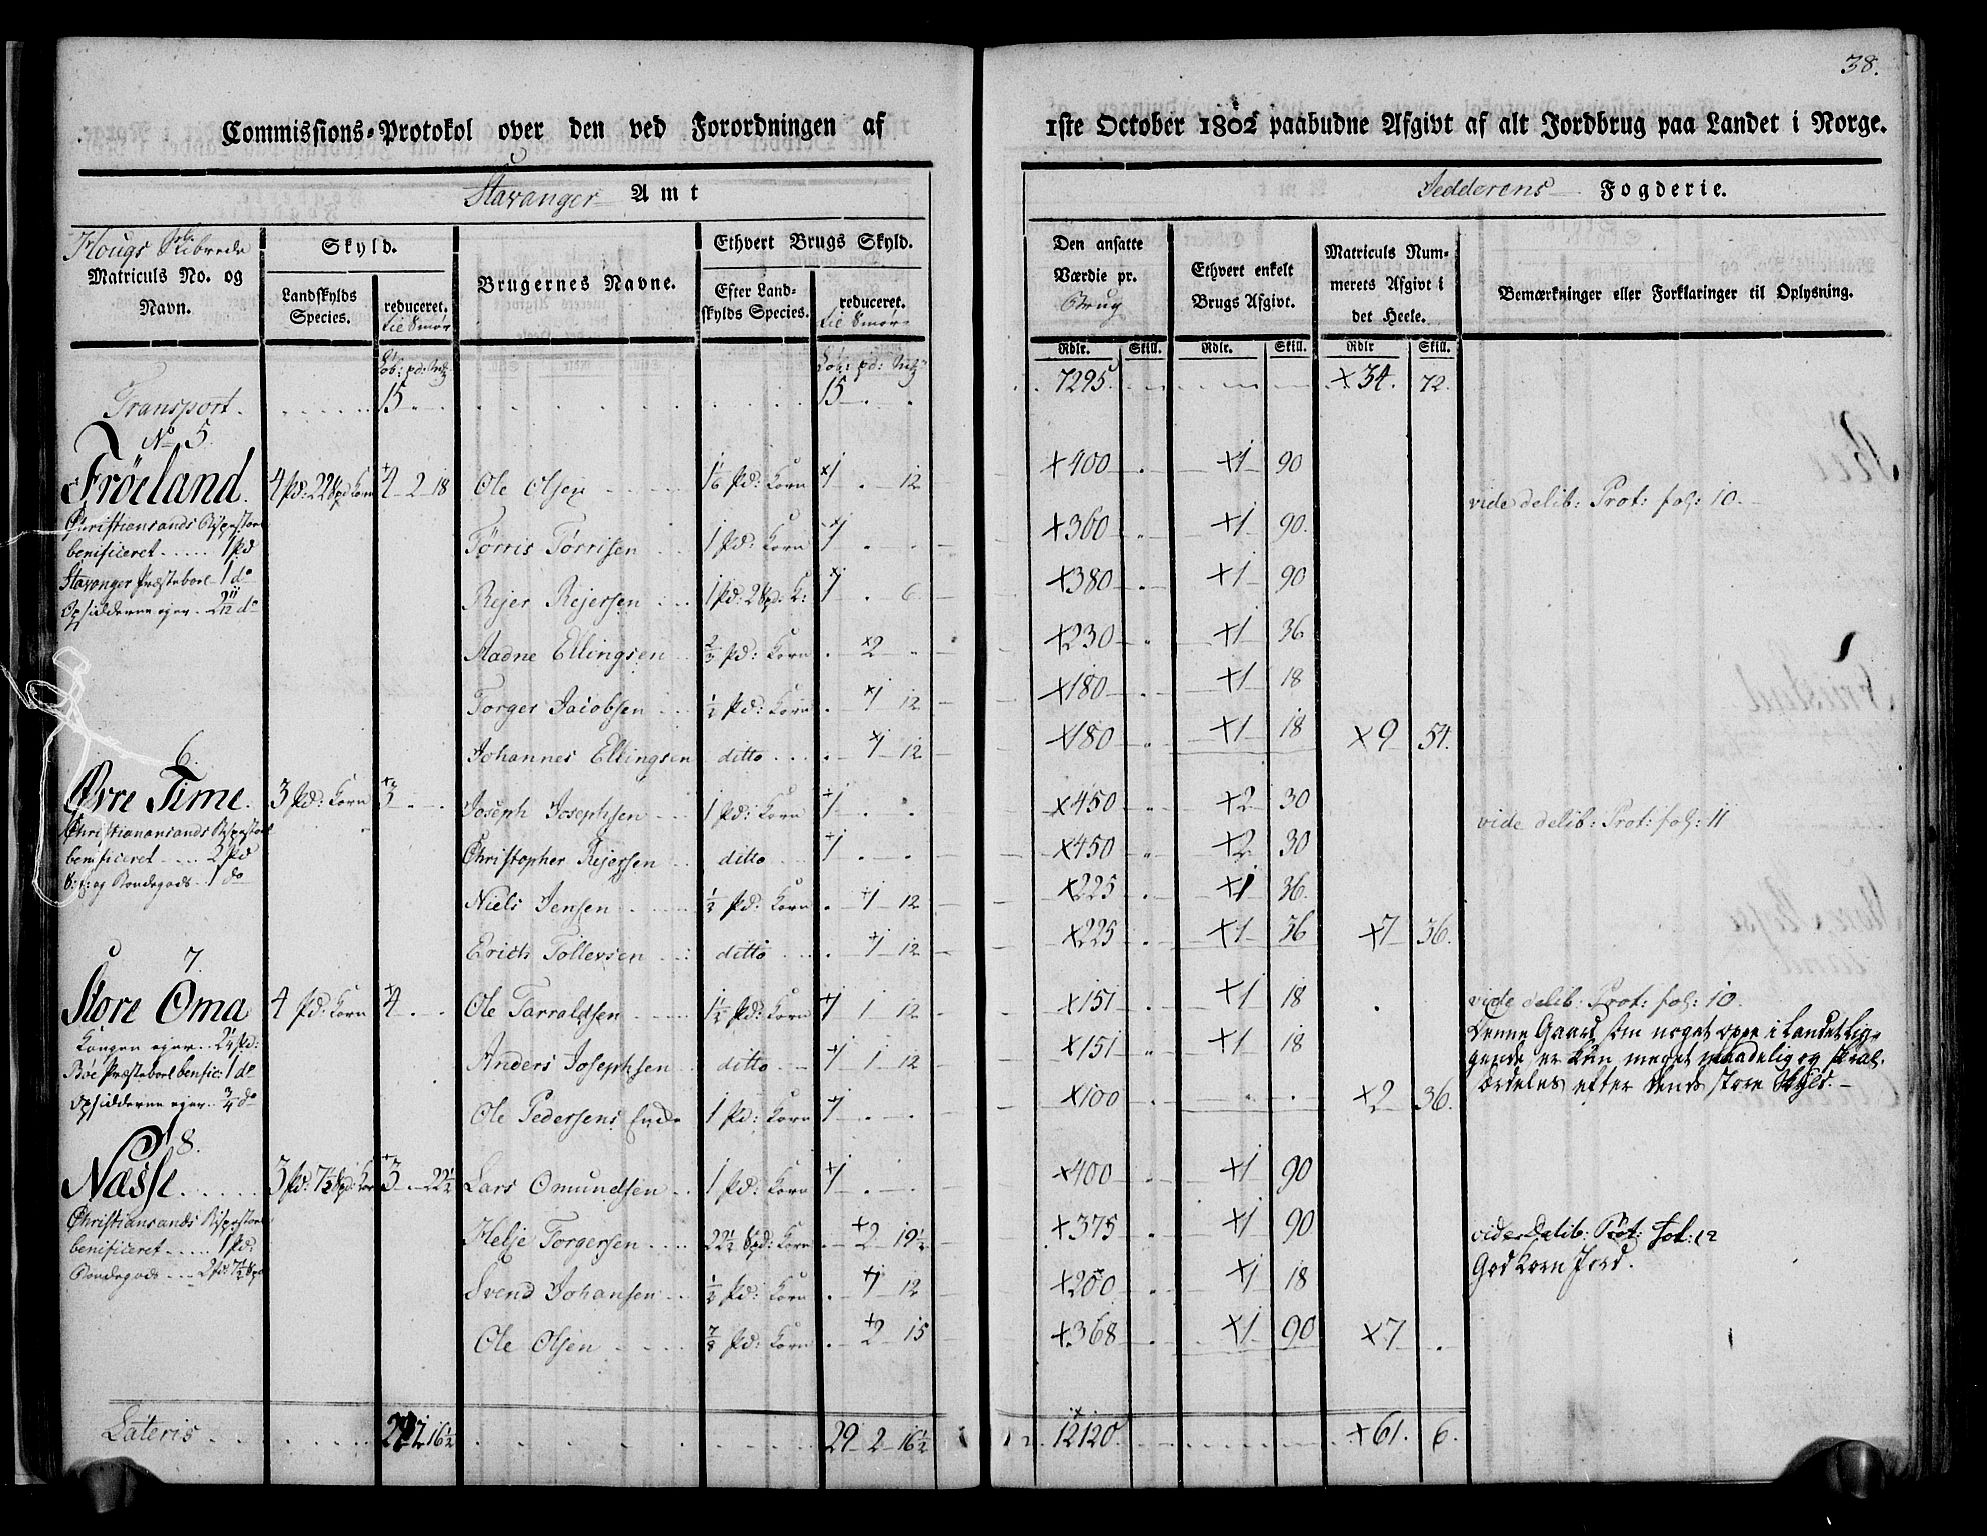 38.
Commissions-Protokol over den ved Forordningen af 1ste October 1802 paabudne Afgivt af alt Jordbrug paa Landet i Norge.
Stavanger Amt
Jedderens Fogderie.
Hougs Skibrede
Matriculs No. og Navn.
Skyld.
Landskylds Species.
reduceret. til Smør
Brugernes Navne.
Ethvert Brugs Skyld.
Efter Landskylds Species.
reduceret. til Smør
Den ansatte Værdie pr. Brug
Ethvert enkelt Brugs Afgivt.
Matriculs Nummerets Afgivt i det Heele.
Bemærkninger eller Forklaringer til Oplysning.
Rdlr. Skill. Rdlr. Skill. Rdlr Skill.
Transport. 15 15 7295. 34. 72.
No 5.
Frøeland. 4 pd: 22 Spd Korn 4 2 18 Ole Olsen 1 1/6 Pd: Korn 1 . 12 400 1 90
vide delib: Prot: fol: 10.
Christiansands Bispestoel
benificeret 1 pd
Stavanger Præsteboel 1 do
Opsidderne ejer 2 11/12 do
Tørris Tørrisen 1 Pd: Korn 1 . . 360 1 90.
Rejer Rejersen 1 Pd: 2 Spd: K: 1 . 6 380 1 90
Aadne Ellingsen 2/3 Pd: Korn . 2 . 230 1 36
Torger Jacobsen 1/2 Pd: Korn . 1 12 180 1 18
Johannes Ellingsen ditto . 1 12 180 1 18 9 54.
6.
Øvre Time. 3 Pd: Korn 3 . . Joseph Josephsen 1 Pd: Korn 1 . . 450 2 30
vide delib: Prot: fol: 11
Christianansands Bispestoel
benificeret 2 pd
S: p: og Bondegods 1 do
Christopher Rejersen ditto 1 . . 450 2 30
Niels Jensen 1/2 Pd: Korn . 1 12 225 1 36.
Erich Tollevsen ditto . 1 12 225 1 36 7 36.
7.
Store Oma 4 Pd: Korn 4 . . Ole Tarraldsen 1 1/2 Pd: Korn 1 1 12 151 1 18
vide delib. Prot: fol: 10.
Kongen ejer 2 1/4 pd:
Bøe Præsteboel benfic: 1 do
Opsidderne ejer 3/4 do
Anders Josephsen ditto 1 1 12 151 1 18
Ole Pedersens Enke 1 Pd: Korn 1 . . 100 . . 2 36.
Denne Gaard som noget oppe i Landet lig-
gende er kun meget maadelig og
efter dends store Skyld.
8.
Næsse 3 Pd: 7 1/2 Spd: Kor 3 . 22 1/2 Lars Omundsen 1 Pd: Korn 1 . . 400 1 90
Christiansands Bispestoel
benificeret 1 pd:
Bondegods 2 pd: 7 1/2 Spd
Helje Torgersen 22 1/2 Spd: Korn . 2 19 1/2 375 1 90
vide Delib: Prot: fol: 12
God Korn Jord.
Svend Johansen 1/2 Pd: Korn . 1 12 200 1 18
Ole Olsen 7/8 Pd: Korn . 2 15 368 1 90 7 .
Lateris 29 2 16 1/2 29 2 16 1/2 12120 61. 6.